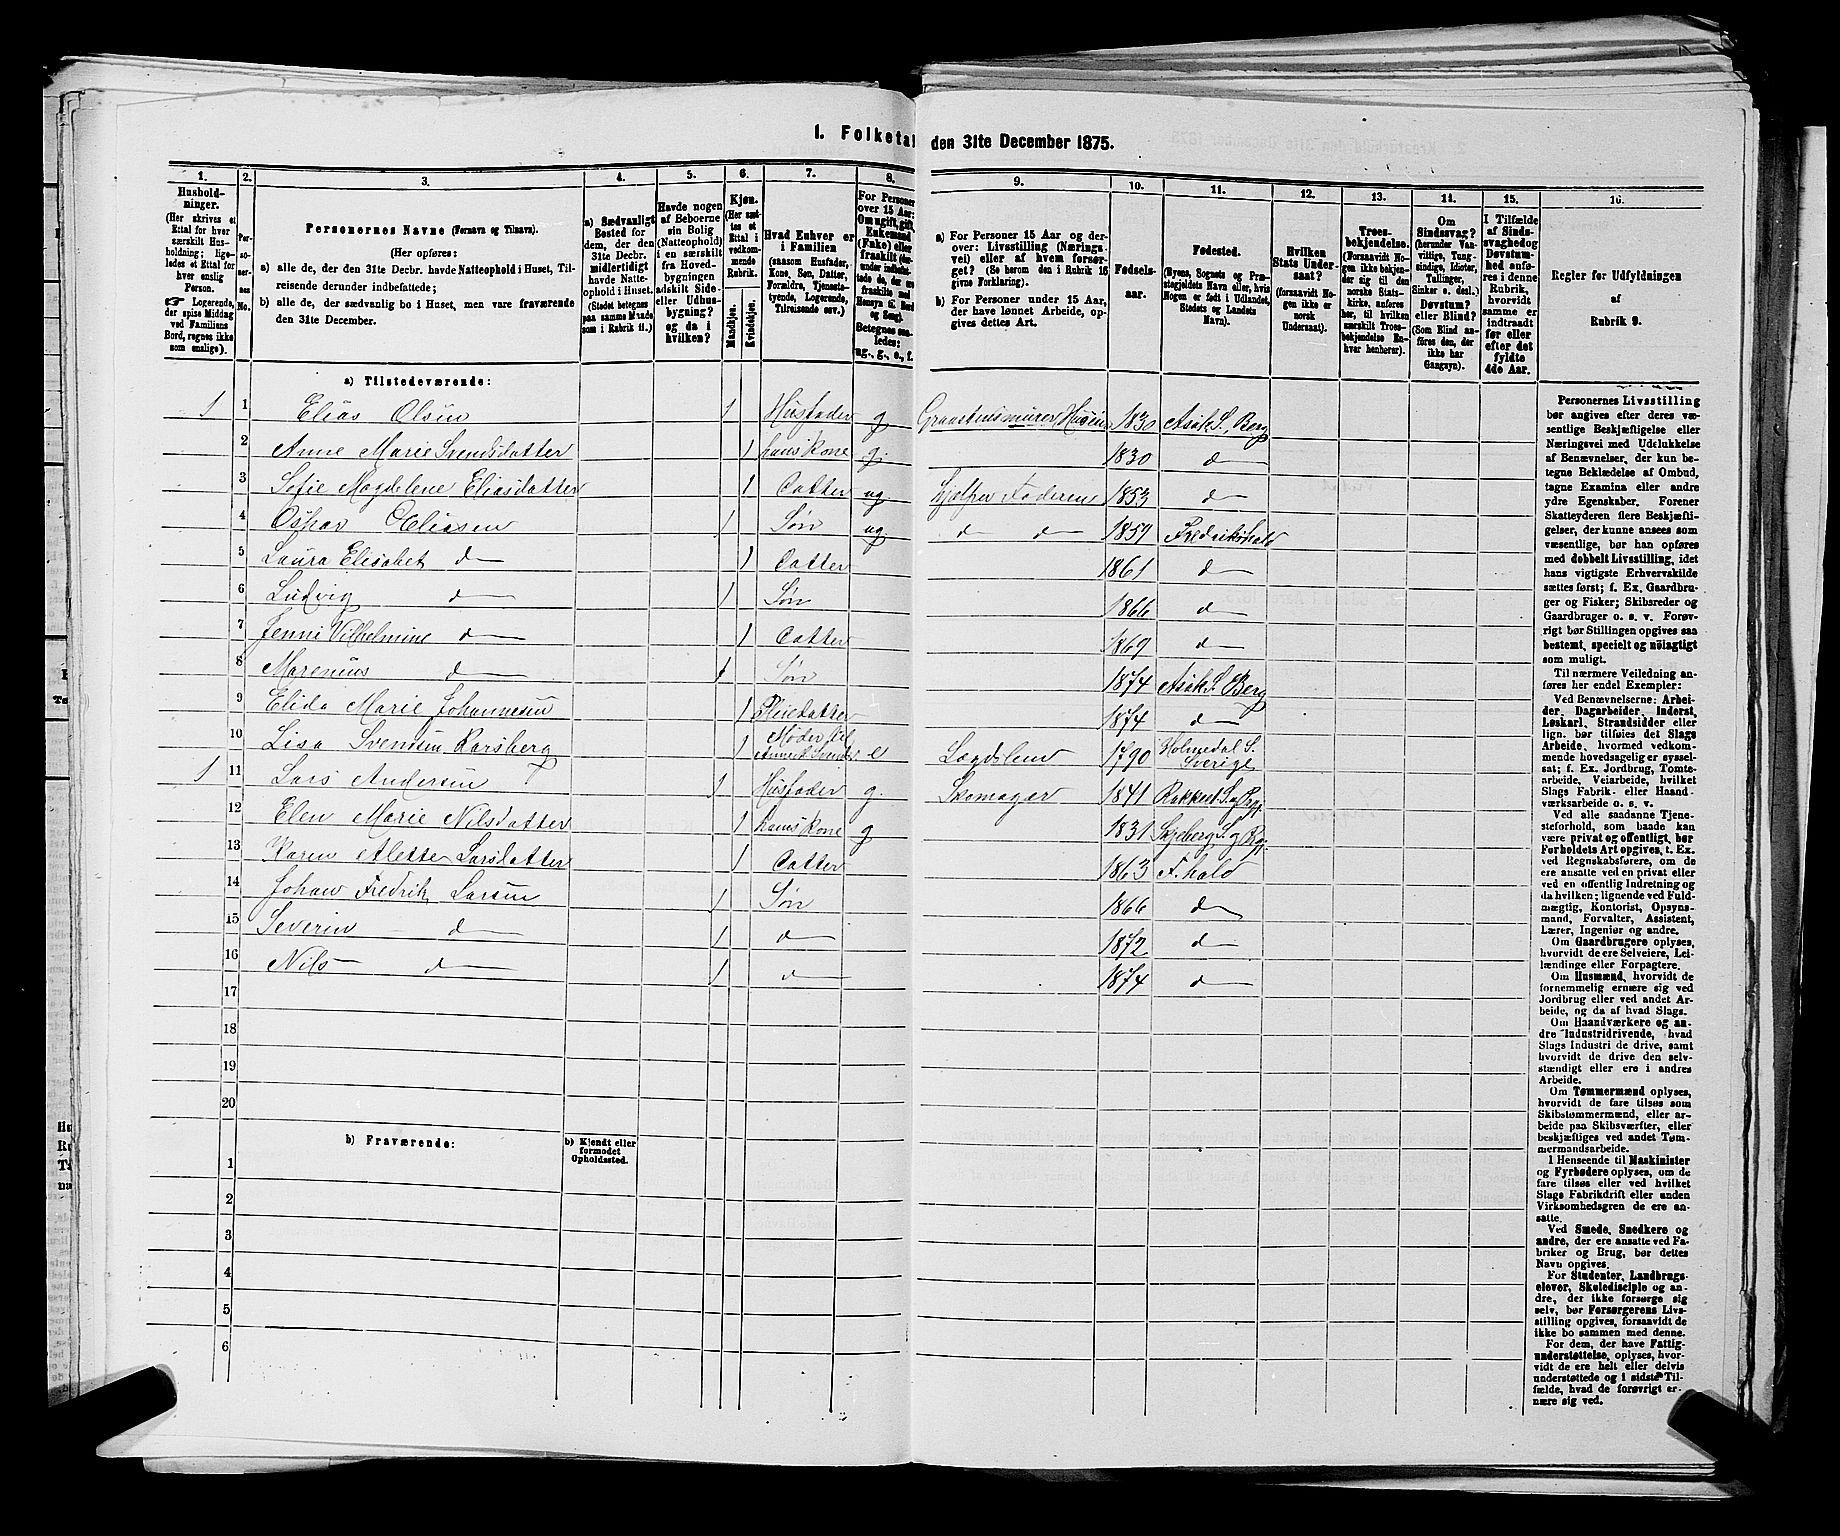 1. Folketal den 31te December 1875.
1. 2. 3. 4. 5. 6. 7. 8. 9. 10. 11. 12. 13. 14. 15. 16.
Husholdninger.
(Her skrives et
Ettal for hver
særskilt Hus-
holdning; lige-
ledes et Ettal for
hver enslig
Person.
☞ Logerende,
der spise Middag
ved Familiens
Bord, regnes ikke
som enslige).
Personernes No.
Personernes Navne (Fornavn og Tilnavn).
(Her opføres:
a) alle de, der den 31te Decbr. havde Natteophold i Huset, Til-
reisende derunder indbefattede;
b) alle de, der sædvanlig bo i Huset, men vare fraværende
den 31te December.
a) Sædvanligt
Bosted for
dem, der den
31te Decbr.
midlertidigt
havde Natte-
ophold i Huset.
(Stedet betegnes
paa samme Maade
som i Rubrik 11.)
Havde nogen
af Beboerne
sin Bolig
(Natteophold)
i en særskilt
fra Hoved-
bygningen
adskilt Side-
eller Udhus-
bygning?
og da i
hvilken?
Kjøn.
(Her sæt-
tes et
Ettal i
vedkom-
mende
Rubrik.
Mandkjøn.
Kvindekjøn.
Hvad Enhver er
i Familien
(saasom Husfader,
Kone, Søn, Datter,
Forældre, Tjeneste-
tyende, Logerende,
Tilreisende osv.)
For Personer
over 15 Aar:
Om ugift, gift,
Enkemand
(Enke) eller
fraskilt
Betegnes saa-
ledes:
ug., g., e., f.
a) For Personer 15 Aar og der-
over: Livsstilling (Nærings-
vei) eller af hvem forsør-
get? (Se herom den i Rubrik 16
givne Forklaring).
b) For Personer under 15 Aar,
der have lønnet Arbeide, op-
gives dettes Art.
Fødsels-
aar.
Fødested.
(Byens, Sognets og Præ-
stegjeldets Navn eller, hvis
Nogen er født i Udlandet,
Stedets og Landets
Navn).
Hvilken
Stats Under-
saat?
(foraavidt No-
gen ikke er
norsk
Undersaat).
Troes-
bekjendelse.
(Foraavidt No-
gen ikke bekjen-
der sig til den
norske Stats-
kirke, anføres
her, til hvilken
særskilt Troes-
bekjendelse En-
hver henhører).
Om
Sindssvag?
(herunder Van-
vittige, Tung-
sindige, Idioter,
Tullinger,
Sinker o. desl.)
Døvstum?
eller Blind?
(Som Blind an-
føres den, der
ikke har
Gangsyn).
I Tilfælde
af Sinds-
svaghed og
Døvstum-
hed anfø-
res i denne
Rubrik,
hvorvidt
samme er
indtraadt
før eller
efter det
fyldte
4de Aar.
Regler for Udfyldningen
af
Rubrik 9.
a) Tilstedeværende:
1 1 Elias Olsen 1 Husfader g Graastensmurer, Huseier 1830 Asak S., Berg
2 Anne Marie Svendsdatter 1 hans Kone g. 1830 d
3 Sofie Magdelene Eliasdatter 1 Datter ug hjælper Faderen 1853 d
4 Oskar Eliasen 1 Søn ug d d 1859 Fredrikshald
5 Laura Elisabet d 1 Datter 1861 d
6 Ludvig d 1 Søn 1866 d
7 Jenni Vilhelmine d 1 Datter 1869 d
8 Marenius d 1 Søn 1874 Asak S. Berg
9 Elida Marie Johannesen 1 Pleiedatter 1874 d
10 Lisa Svendsen Karsberg 1 Moder til e Lægdslem 1790 Holmedal S. Sverige
1 11 Lars Andersen 1 Husfader g. Skomager 1841 Rakkest. S. og Pgj.
12 Elen Marie Nilsdatter 1 hans Kone g 1831 Skjeberg S. og Pgj.
13 Karen Alette Larsdatter 1 Datter 1863 F.hald
14 Johan Fredrik Larsen 1 Søn 1866 d
15 Severin d 1 d 1872 d
16 Nils d 1 d 1874 d
17
18
19
20
b) Fraværende:
b) Kjendt eller
formodet
Opholdssted.
1
2
3
4
5
6
Personernes Livsstilling
bør angives efter deres væ-
sentlige Beskjæftigelse eller
Næringsvei med Udelukkelse
af Benævnelser, der kun be-
tegne Beklædelse af Ombud,
tagne Examina eller andre
ydre Egenskaber. Forener
Skatteyderen flere Beskjæfti-
gelser, der kunne ansees som
væsentlige, bør han opføres
med dobbelt Livsstilling, idet
hans vigtigste Erhvervskilde
sættes først; f. Ex. Gaardbru-
ger og Fisker; Skibsreder og
Gaardbruger o. s. v. Forøv-
rigt bør Stillingen opgives saa
bestemt, specielt og nöiagtigt
som muligt.
Til nærmere Veiledning an-
føres her endel Exempler:
Ved Benævnelserne: Arbei-
der, Dagarbeider, Inderst,
Løskarl, Strandsidder eller
lign. bør tilføies det Slags
Arbeide, hvormed vedkom-
mende hovedsagelig er syssel-
sat; f. Ex. Jordbrug, Tomte-
arbeide, Veiarbeide, hvilket
Slags Fabrik- eller Haand-
værksarbeide o. s. v.
Ved alle saadanne Tjene-
steforhold, som baade kan
være privat og offentligt, bør
Forholdets Art opgives, t. Ex.
ved Regnskabsførere, om de
ere ansatte ved en privat eller
ved en offentlig Indretning og
da hvilken; lignende ved Fuld-
mægtig, Kontorist, Opsyns-
mand, Forvalter, Assistent,
Lærer, Ingeniør og andre.
Om Gaardbrugere oplyses,
hvorvidt de ere Selveiere, Lei-
lændinge eller Forpagtere.
Om Husmænd, hvorvidt de
fornemmelig ernære sig ved
Jordbrug eller ved andet Ar-
beide, og da af hvad Slags.
Om Haandværkere og an-
dre Industridrivende, hvad
Slags Industri de drive, samt
hvorvidt de drive den selv-
stændigt eller ere i andres
Arbeide.
Om Tømmermænd oplyses,
hvorvidt de fare tilsøs som
Skibstømmermænd, eller ar-
beide paa Skibsværfter, eller
beskjæftiges ved andet Tøm-
mermandsarbeide.
I Henseende til Maskinister
og Fyrbødere oplyses, om de
fare tilsøs eller ved hvilket
Slags Fabrikdrift eller anden
Virksomhedsgren de ere an-
satte.
Ved Smede, Snedkere og
andre, der ere ansatte ved Fa-
briker og Brug, bør dettes
Navn opgives.
For Studenter, Landbrugs-
elever, Skoledisciple og an-
dre, der ikke forsørge sig
selv, bør Forsørgerens Livs-
stilling opgives, forsaavidt de
ikke bo sammen med denne.
For dem, der have Fattig-
understøttelse, oplyses, hvor-
vidt de ere helt eller delvis
understøttede og i sidste Til-
fælde, hvad de forøvrigt er-
nære sig ved.